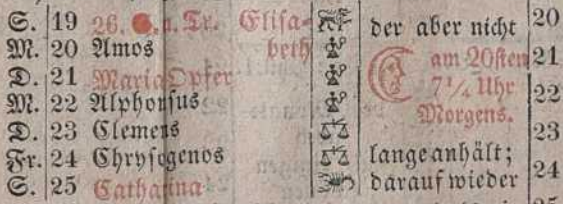 S. 19 26. S. n. Tr. Elisa- der aber nicht 20
M. 20 Amos beth am 20sten 21
D. 21 Mariä Opfer 7 1/4 Uhr
M. 22 Alphonsus Morgens. 22
D. 23 Clemens 23
Fr. 24 Chrysogenos lange anhält;
S. 25 Catharina darauf wieder 24